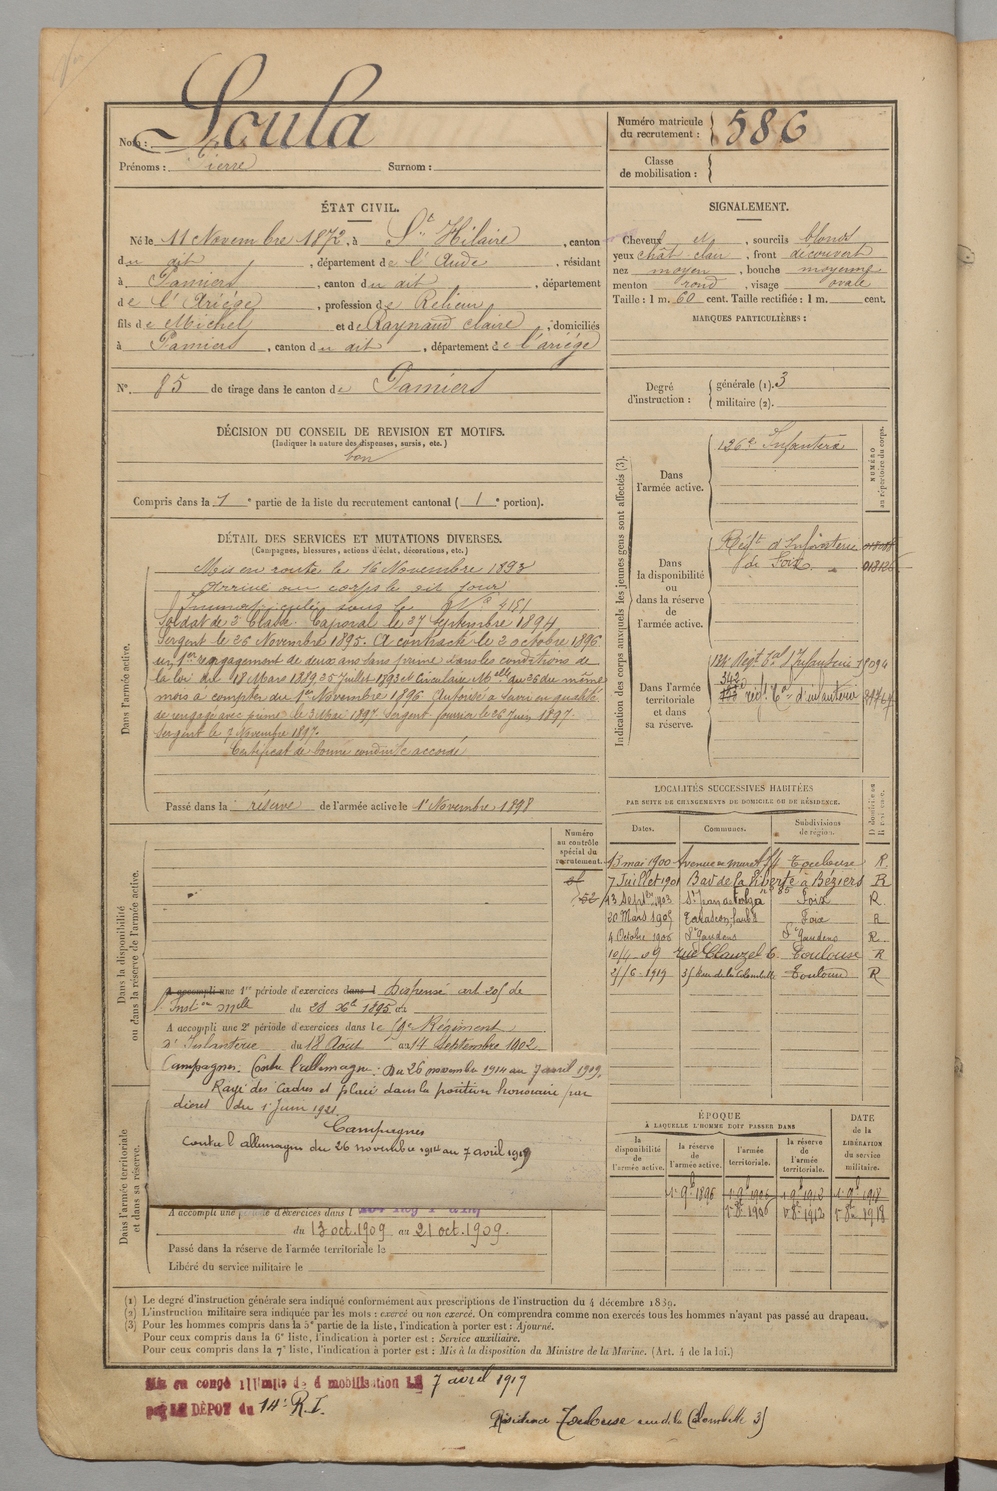 Nom : Soula
Prénoms : Pierre Surnom :
Numéro matricule du recrutement : 586
Classe de mobilisation :
ÉTAT CIVIL.
Né le 11 Novembre 1872, à St Hilaire, canton
du dit, département de l'Aude, résidant
à Pamiers, canton du dit, département
de l'Ariége, profession de Relieur
fils de Michel et de Raynaud Claire, domiciliés
à Pamiers, canton du dit, département de l'ariége
N° 85 de tirage dans le canton de Pamiers
DÉCISION DU CONSEIL DE REVISION ET MOTIFS.
(Indiquer la nature des dispenses, sursis, etc.)
bon
Compris dans la 1e partie de la liste du recrutement cantonal (1e portion).
DÉTAIL DES SERVICES ET MUTATIONS DIVERSES.
(Campagnes, blessures, actions d'éclat, décorations, etc.)
Dans l'armée active.
Mis en route le 16 Novembre 1893
Arrivé au corps le dit jour
Immatriculé sous le N° 4151
Soldat de 2e Classe. Caporal le 27 Septembre 1894
Sergent le 26 Novembre 1895. A contracté le 2 octobre 1896
un 1er rengagement de deux ans sans prime dans les conditions de
la loi du 18 Mars 1889 25 Juillet 1893 et Circulaire Mlle du 26 du même
mois à compter du 1er Novembre 1896 Autorisé à servir en qualité
de rengagé avec prime le 3 Mai 1897 Sergent fourrier le 26 Juin 1897.
Sergent le 7 Novembre 1897.
Certificat de bonne conduite accordé
Passé dans la réserve de l'armée active le 1er Novembre 1898
Numéro au contrôle spécial du recrutement.
Dans la disponibilité ou dans la réserve de l'armée active.
A accompli une 1re période d'exercices dans l Dispensé art 205 de
l'Instion Mlle du 28 Xbre 1895 de
A accompli une 2e période d'exercices dans le Régiment
d'Infanterie du 18 Août au 14 Septembre 1902
Campagnes. Contre l'allemagne. Du 26 novembre 1914 au 7 avril 1919.
Rayé des cadres et placé dans la position honoraire par
décret du 1er Juin 1921.
Campagnes
Contre l'allemagne du 26 novembre 1914 au 7 avril 1919
Dans l'armée territoriale et dans sa réserve.
A accompli une d'exercices dans l
du 13 oct. 1909 au 21 oct. 1909.
Passé dans la réserve de l'armée territoriale le
Libéré du service militaire le
SIGNALEMENT.
Cheveux et, sourcils blonds
yeux chât. clair, front découvert
nez moyen, bouche moyenne
menton rond, visage ovale
Taille : 1 m. 60 cent. Taille rectifiée : 1 m. cent.
MARQUES PARTICULIÈRES :
Degré d'instruction : générale (1). 3
militaire (2).
Indication des corps auxquels les jeunes gens sont affectés (3).
NUMÉRO au répertoire du corps.
Dans l'armée active. 126e Infanterie
Dans la disponibilité ou dans la réserve de l'armée active.
Régt d'Infanterie
de Foix
Dans l'armée territoriale et dans sa réserve.
Régt Tal d'Infanterie
régt Tal d'infanterie
LOCALITÉS SUCCESSIVES HABITÉES
PAR SUITE DE CHANGEMENTS DE DOMICILE OU DE RÉSIDENCE.
Dates. Communes. Subdivisions de région. D domicile ou R résidence.
13 mai 1900 avenue de muret Toulouse R
7 Juillet 1901 Bard de la liberté n° 85 à Béziers R
13 Septbre 1903 St Jean de Verges Foix R
20 Mars 1905 Tarascon Foix R
4 Octobre 1906 St Gaudens St Gaudens R
10/4-09 rue Clauzel 6 Toulouse R
2/6-1919 3 rue de la Colombette Toulouse R
ÉPOQUE
À LAQUELLE L'HOMME DOIT PASSER DANS
DATE de la LIBÉRATION du service militaire.
la disponibilité de l'armée active. la réserve de l'armée active. l'armée territoriale. la réserve de l'armée territoriale.
1er 9b 1896 1er 9b 1906 1er 9b 1912 1er 9b 1918
1er 8bre 1906 1er 8bre 1912 1er 8bre 1918
(1) Le degré d'instruction générale sera indiqué conformément aux prescriptions de l'instruction du 4 décembre 1889.
(2) L'instruction militaire sera indiquée par les mots : exercé ou non exercé. On comprendra comme non exercés tous les hommes n'ayant pas passé au drapeau.
(3) Pour les hommes compris dans la 5e partie de la liste, l'indication à porter est : Ajourné.
Pour ceux compris dans la 6e liste, l'indication à porter est : Service auxiliaire.
Pour ceux compris dans la 7e liste, l'indication à porter est : Mis à la disposition du Ministre de la Marine. (Art. 4 de la loi.)
Mis en congé illimité de démobilisation LE 7 avril 1919
par LE DÉPOT du 14e R.I.
Résidence Toulouse rue de la Colombette 3